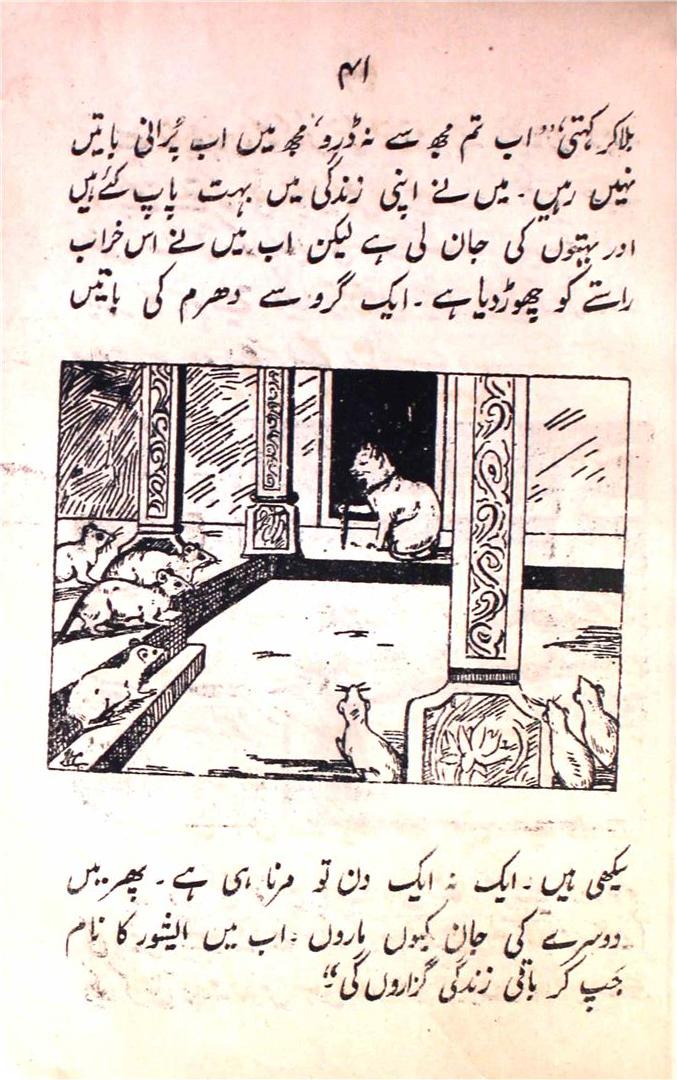 ۴۱
بلا کر کہتی، "اب تم مجھ سے نہ ڈرو، مجھ میں اب پُرانی باتیں
نہیں رہیں۔ میں نے اپنی زندگی میں بہت پاپ کئے ہیں
اور بہتوں کی جان لی ہے لیکن اب میں نے اس خراب
راستے کو چھوڑ دیا ہے۔ ایک گرو سے دھرم کی باتیں
سیکھی ہیں۔ ایک نہ ایک دن تو مرنا ہی ہے۔ پھر میں
دوسرے کی جان کیوں ماروں، اب میں ایشور کا نام
جَپ کر باقی زندگی گزاروں گی"۔